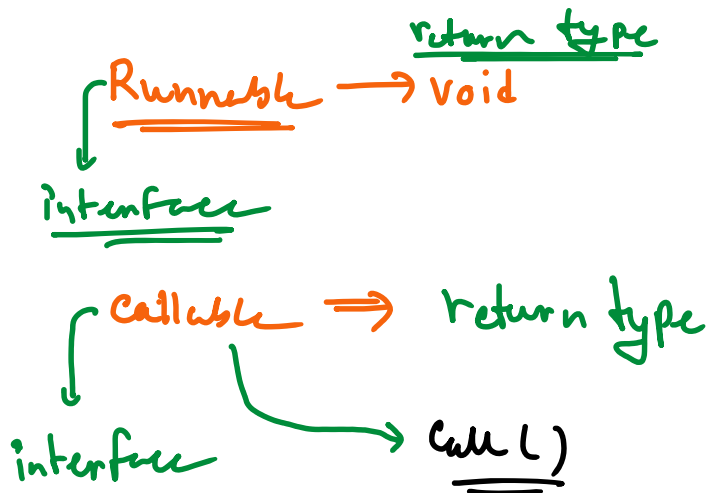 return type
Runnable → void
interface
Callable ⇒ return type
call()
interface